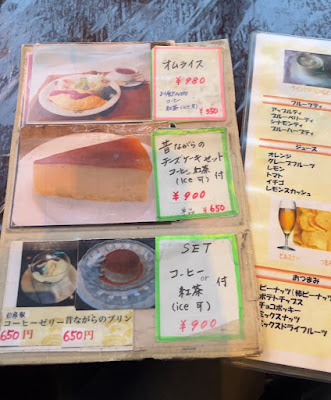 オムライス
¥980
コーヒー
紅茶
(ice 可)
¥550
昔ながらの
チーズケーキセット
コーヒー 紅茶 付
(ice 可)
¥900
¥650
SET
コーヒー or 紅茶 付
(ice 可)
¥900
自家製
コーヒーゼリー
650円
昔ながらのプリン
650円
フルーツティ
アップルティ
ブルーベリーティ
シナモンティ
ブルーハーブティ
ジュース
オレンジ
グレープフルーツ
レモン
トマト
イチゴ
レモンスカッシュ
おつまみ
ピーナッツ(柿ピーナッツ)
ポテトチップス
チョコポッキー
ミックスナッツ
ミックスドライフルーツ